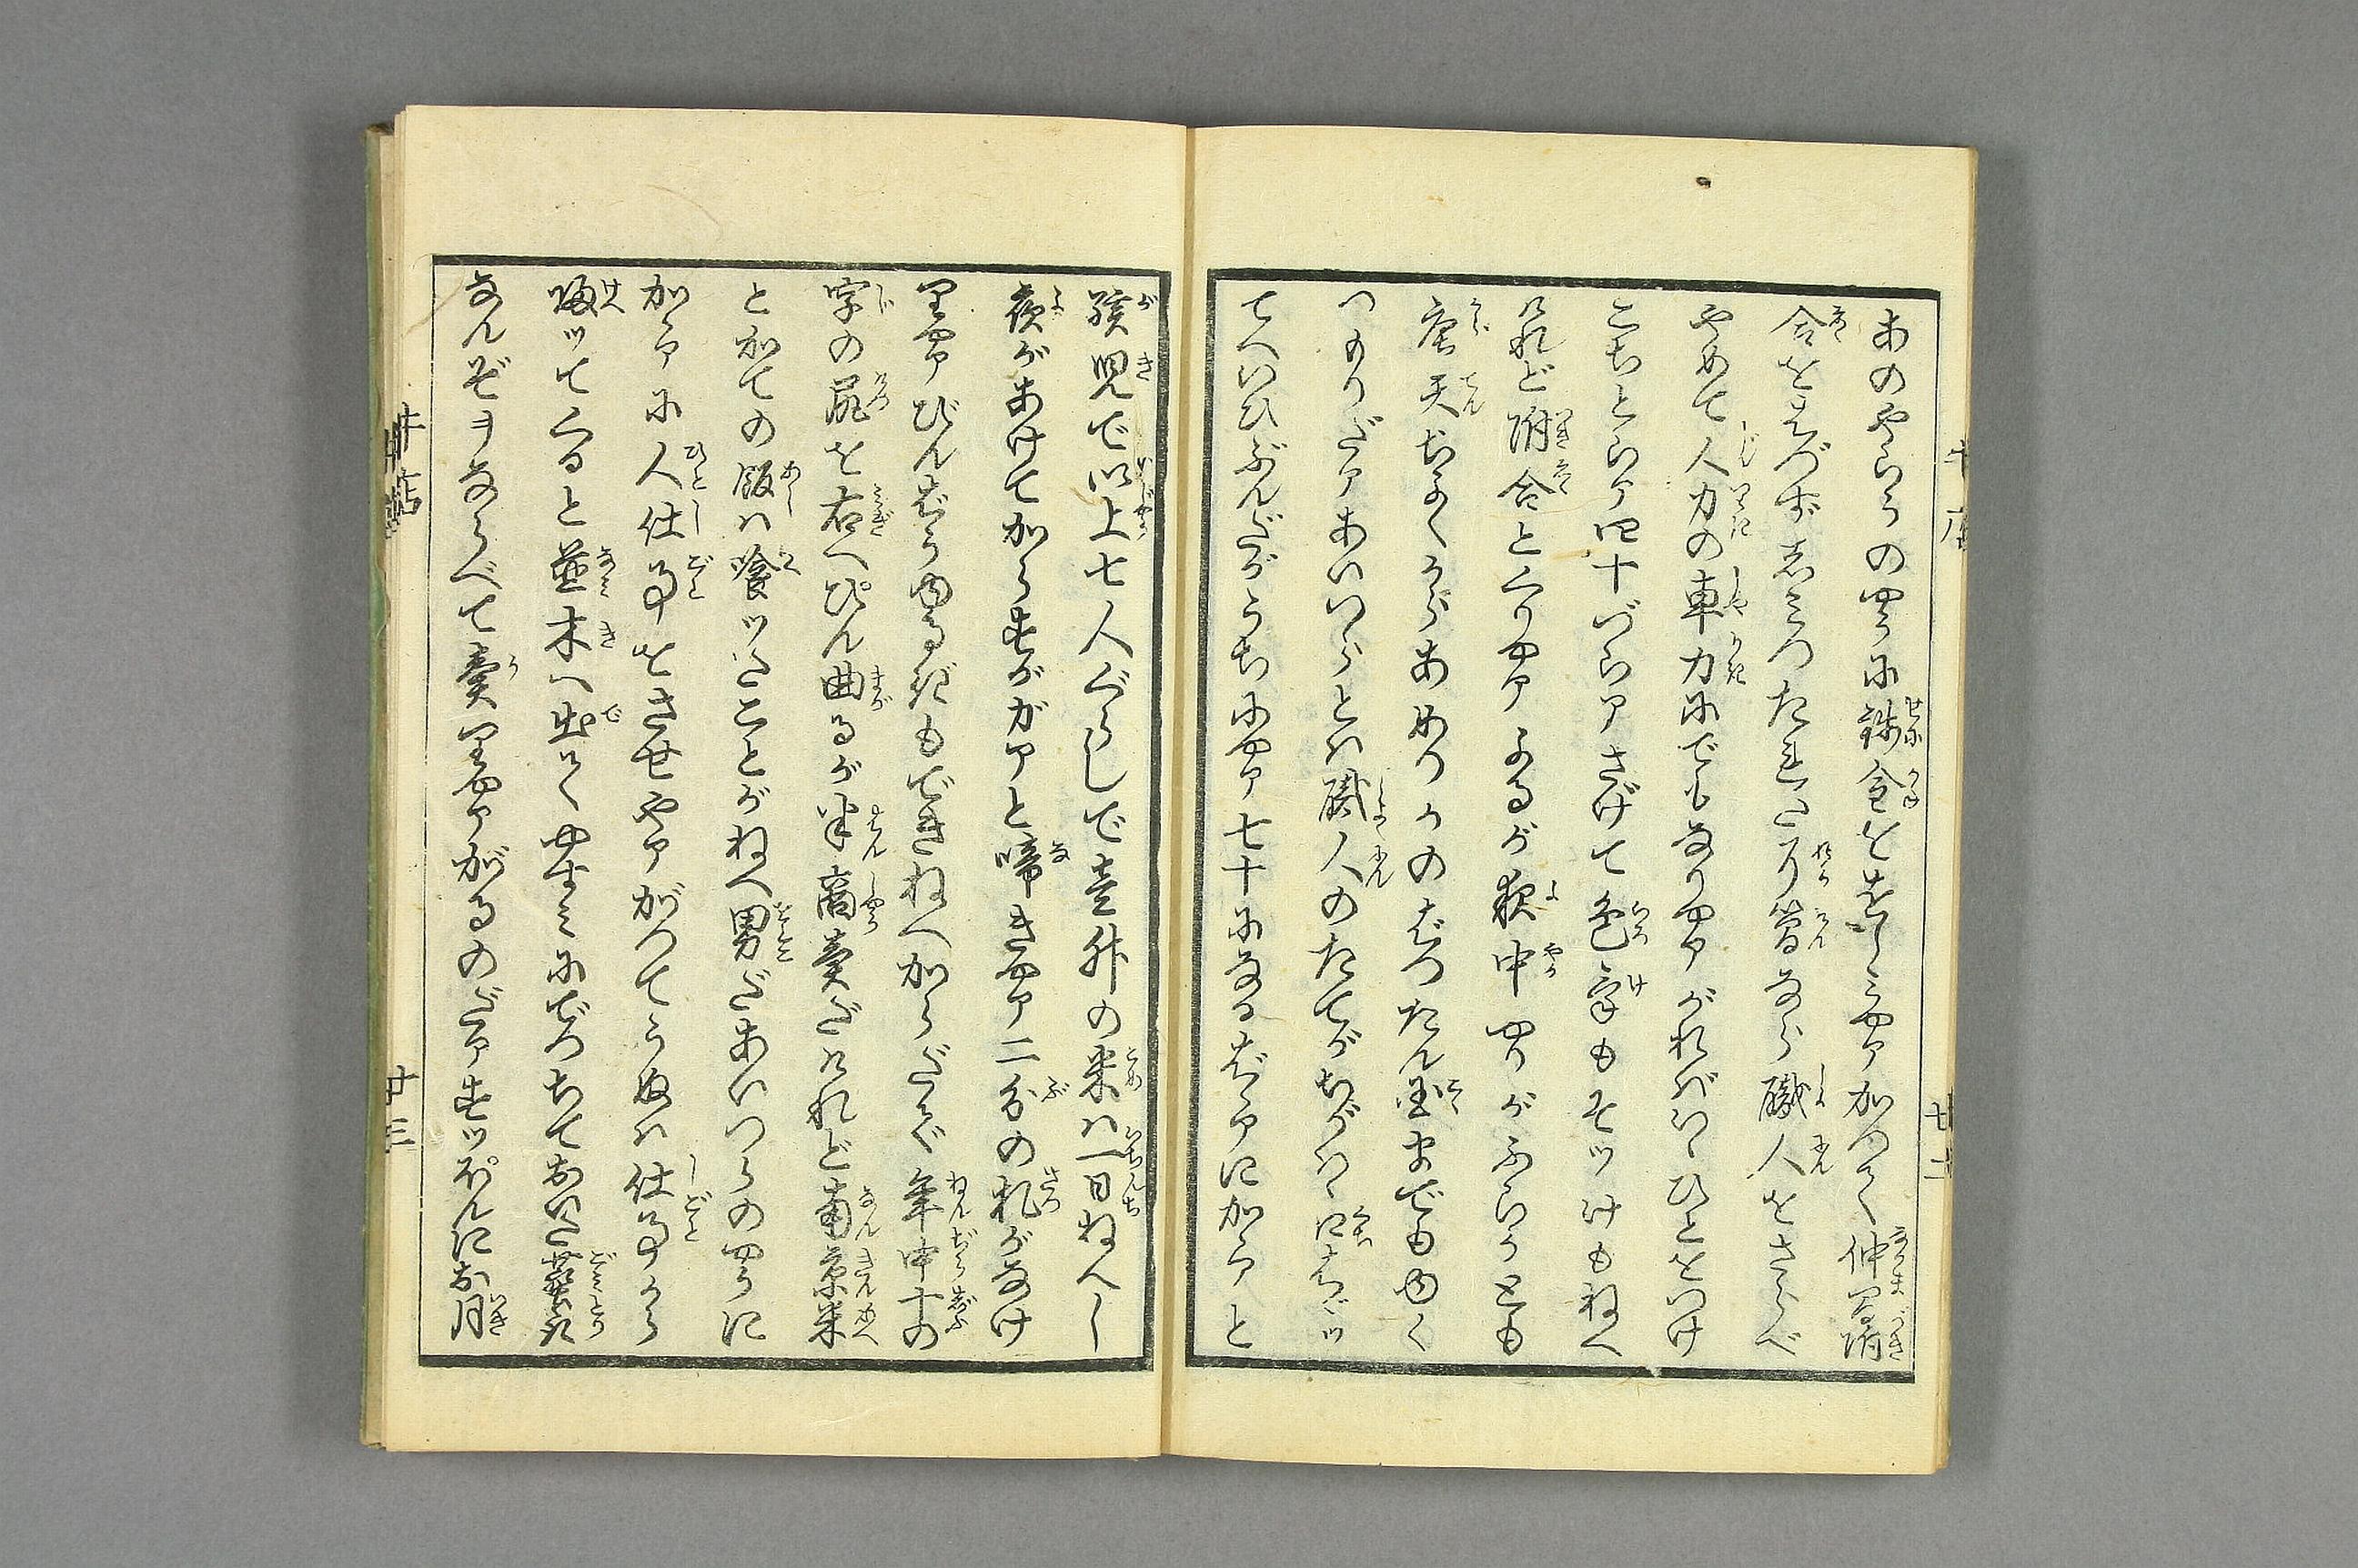 あのやらうのやうに銭金ををしみやアがつて仲間附
合をはづすしみつたれた了簡なら職人をさらべ
やめて人力の車力にでもなりやアがればいゝひとをつけ
こちとらア四十づらアさげて色気もそツけもねへ
けれど附合とくりやアよるが夜中やりがふらうとも
唐天ぢくからあめりかのばつたん国までもゆく
つもりだアあいつらとは職人のたてがちがはゝ口はゞツ
てへいひぶんだがうちにやア七十になるばゞアにかゝアと
孩児で以上七人ぐらしで壱升の米は一日ねへし
夜があけてからすがガアと啼きやア二分の札がなけ
りやアびんばうゆるぎもできねへからだで年中十の
字の尻を右へぴん曲るが半商売だけれど南京米
とかての飯は喰ツたことがねへ男だあいつらのやうに
かゝアに人仕事をさせやアがつてうぬは仕事から
帰ツてくると並木へ出てやすみにでつちておいた塵取
なんぞヲならべて売りやアがるのだアすツぽんにお月
牛店
廿三